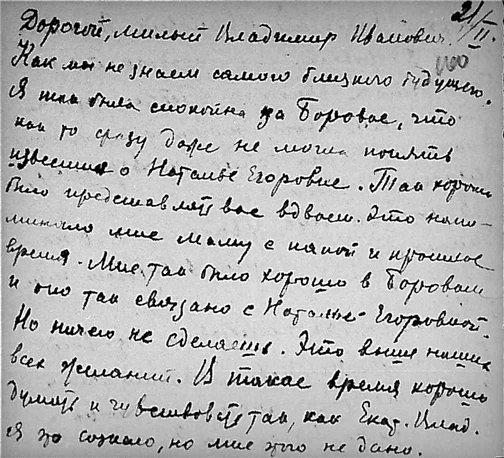 21/II.
Дорогой, милый Владимир Иванович.
Как мы не знаем самого близкого будущего.
Я так была спокойна за Боровое, что
как то сразу даже не могла понять
известия о Наталье Егоровне. Так хорошо
было представлять вас вдвоем. Это напо-
минало мне маму с папой и прошлое
время. Мне так было хорошо в Боровом
и оно так связано с Натальей Егоровной.
Но ничего не сделаешь. Это выше наших
всех желаний. В такое время хорошо
думать и чувствовать так, как Екат. Влад.
Я это сознаю, но мне этого не дано.